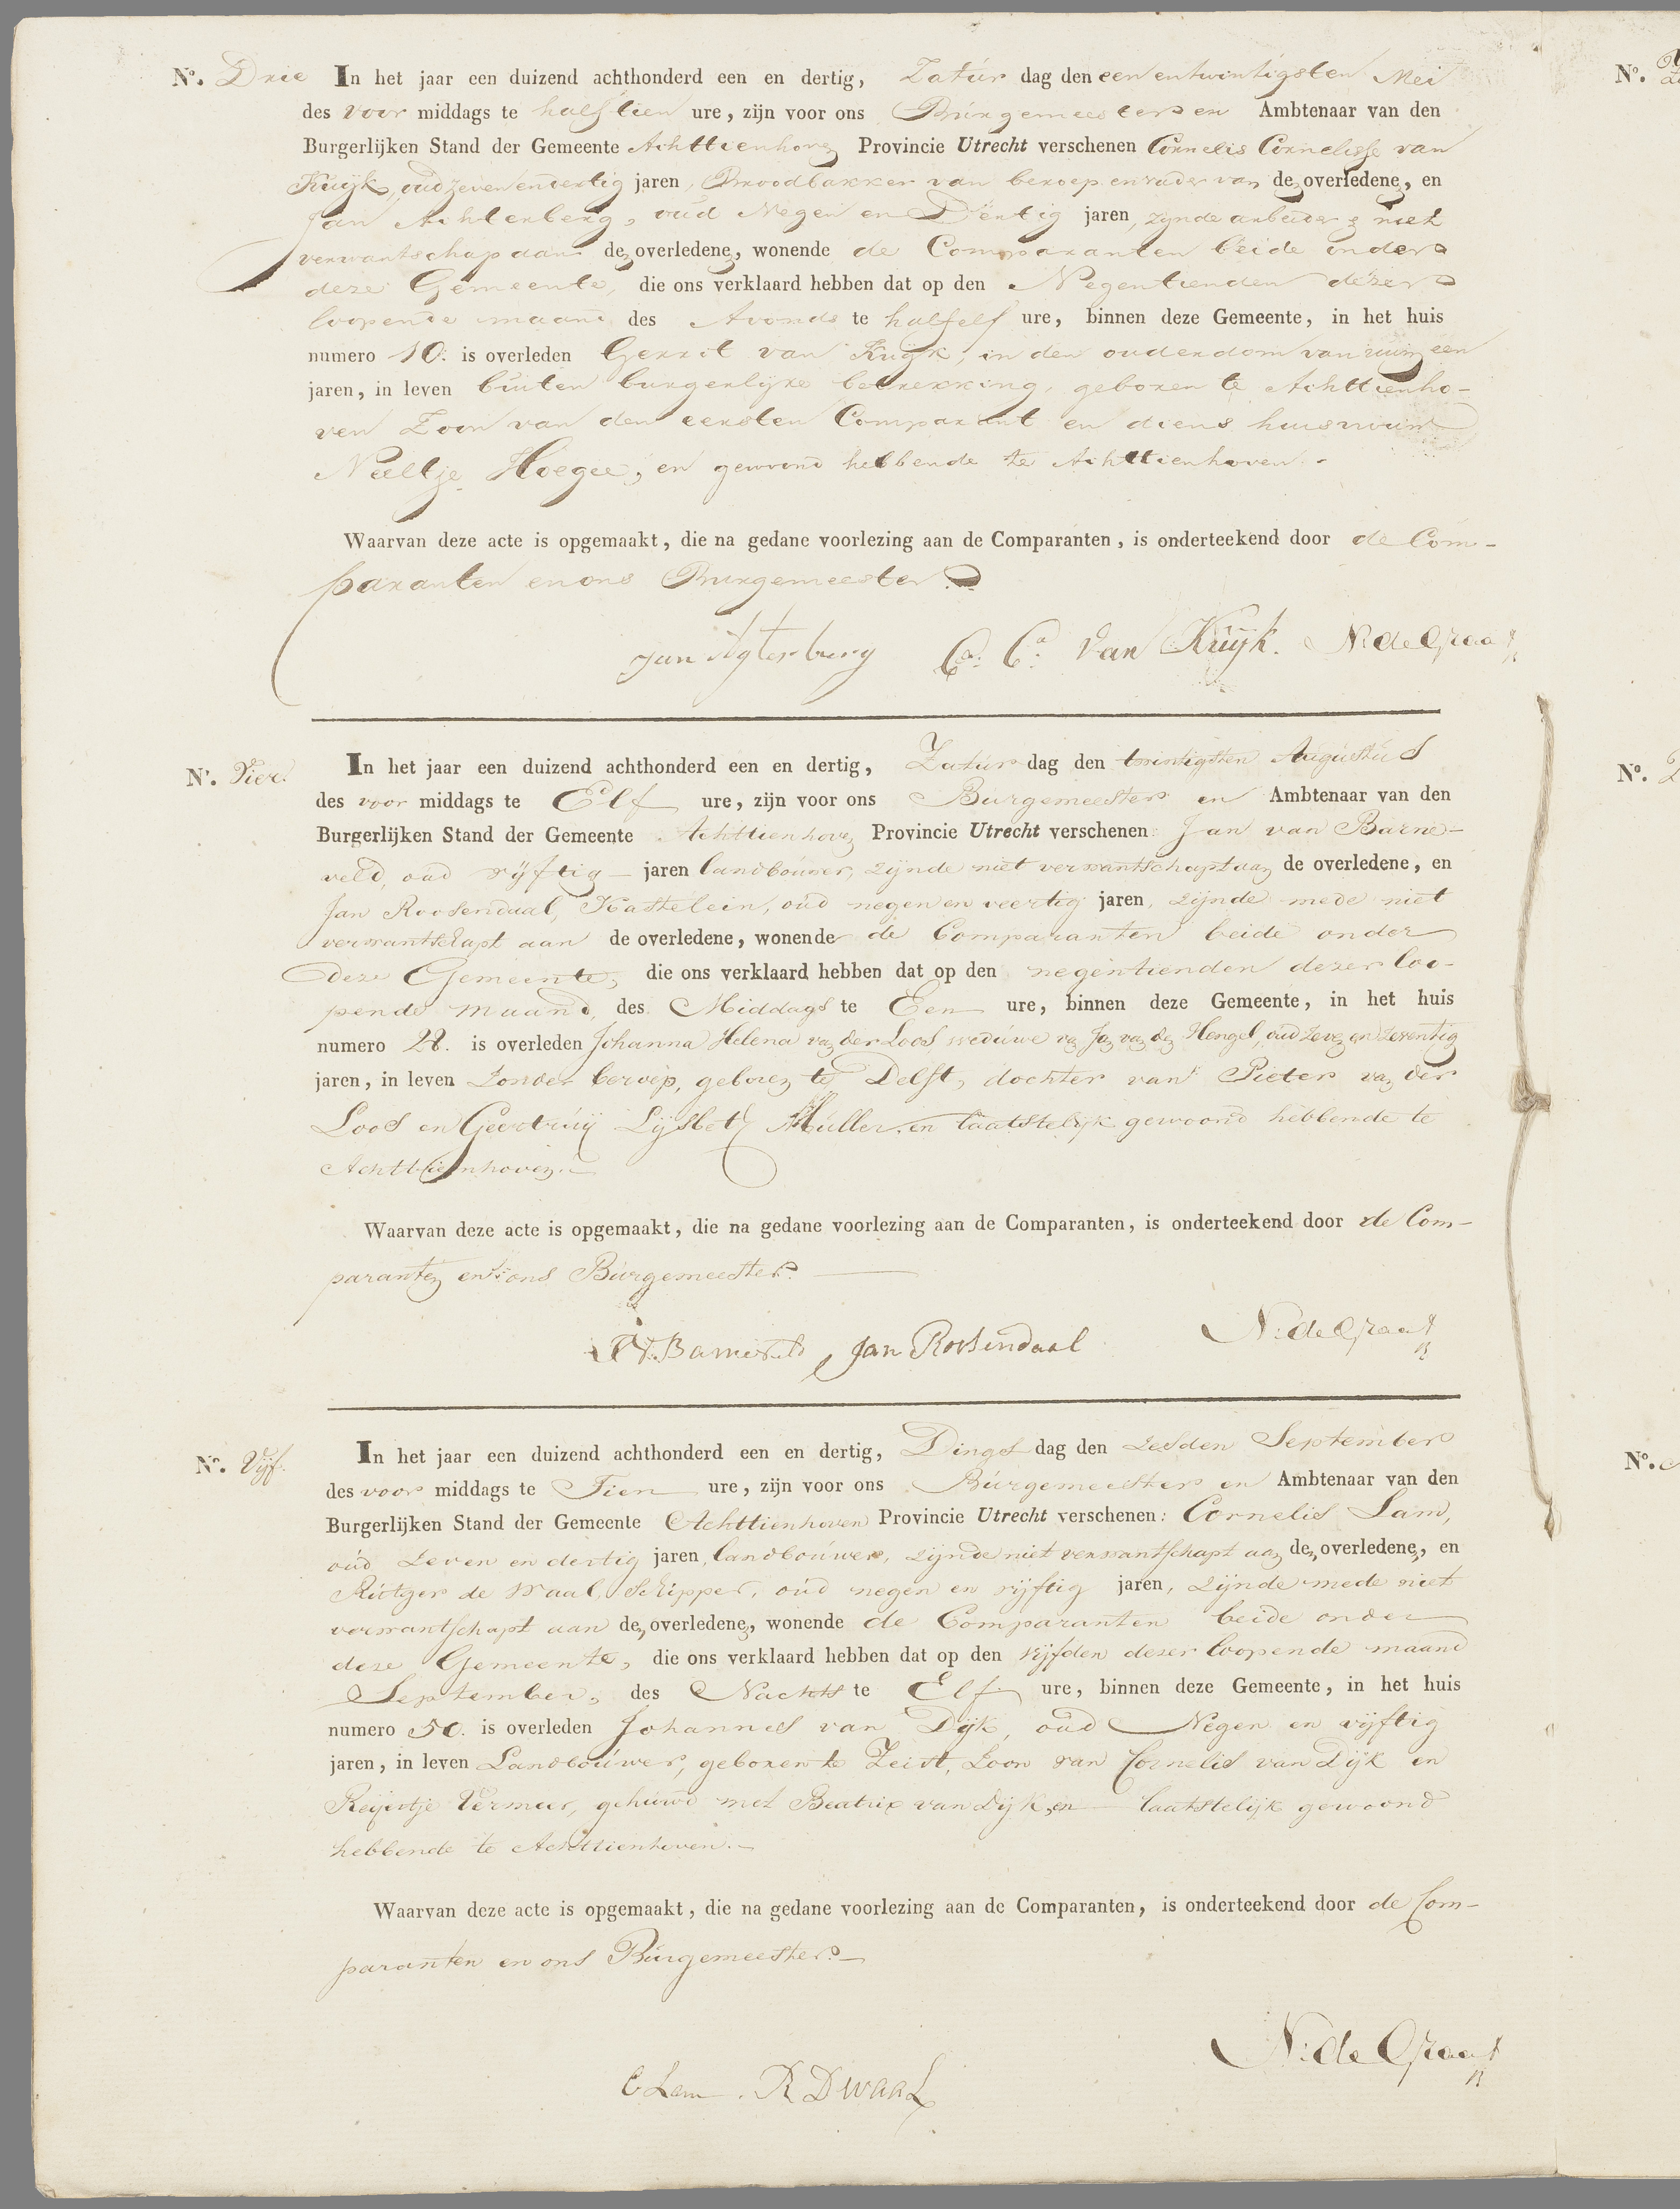 N.º Drie In het jaar een duizend achthonderd een en dertig, Zatur dag den een en twintigsten Mei
des voor middags te half tien ure, zijn voor ons Burgemeester en Ambtenaar van den
Burgerlijken Stand der Gemeente Achttienhoven Provincie Utrecht verschenen Cornelis Cornelisse van
Kuijk, oud zeven en dertig jaren, Broodbakker van beroep en vader van den overledenen, en
Jan Achterberg, oud Negen en Dertig jaren, zynde arbeider & niet
verwantschap aan den overledenen, wonende de Comparanten beide onder
deze Gemeente, die ons verklaard hebben dat op den Negentienden dezer
loopende maand des Avonds te half elf ure, binnen deze Gemeente, in het huis
numero 10. is overleden Gerrit van Kuijk, in den ouderdom van ruim een
jaren, in leven buiten burgerlijke betrekking, geboren te Achttienho-
ven Zoon van den eersten Comparant en diens huisvrouw
Neeltje Hoegee, en gewoond hebbende te Achttienhoven.
Waarvan deze acte is opgemaakt, die na gedane voorlezing aan de Comparanten, is onderteekend door de Com-
paranten en ons Burgemeester.
Jan Agterberg C.s C.s Van Kuijk. N: de Graaf
N.º Vier. In het jaar een duizend achthonderd een en dertig, Zatur dag den twintigsten Augustus
des voor middags te Elf ure, zijn voor ons Burgemeester en Ambtenaar van den
Burgerlijken Stand der Gemeente Achttienhoven Provincie Utrecht verschenen: Jan van Barne-
veld, oud vijftig jaren landbouwer, zijnde niet verwantschapt aan de overledene, en
Jan Roosendaal, Kastelein, oud negen en veertig jaren, zijnde mede niet
verwantschapt aan de overledene, wonende de Comparanten beide onder
deze Gemeente, die ons verklaard hebben dat op den negentienden dezer loo-
pende maand, des Middags te Een ure, binnen deze Gemeente, in het huis
numero 28. is overleden Johanna Helena van der Loos weduwe van Jan van den Hengel, oud zeven en zeventig
jaren, in leven zonder beroep, geboren te Delft, dochter van Pieter van der
Loos en Geertruij Lijsbeth Muller, en laatstelijk gewoond hebbende te
Achttienhoven.
Waarvan deze acte is opgemaakt, die na gedane voorlezing aan de Comparanten, is onderteekend door de Com-
paranten en ons Burgemeester.
J V. Barneveld Jan Rosendaal N: de Graaf
N.º Vijf. In het jaar een duizend achthonderd een en dertig, Dings dag den zesden September
des voor middags te Tien ure, zijn voor ons Burgemeester en Ambtenaar van den
Burgerlijken Stand der Gemeente Achttienhoven Provincie Utrecht verschenen: Cornelis Lam,
oud zeven en dertig jaren, landbouwer, zijnde niet verwantschapt aan den overledenen, en
Rutger de Waal, Schipper, oud negen en vijftig jaren, zijnde mede niet
verwantschapt aan den overledenen, wonende de Comparanten beide onder
deze Gemeente, die ons verklaard hebben dat op den vijfden dezer loopende maand
September, des Nachts te Elf ure, binnen deze Gemeente, in het huis
numero 50. is overleden Johannes van Dijk, oud Negen en vijftig
jaren, in leven Landbouwer, geboren te Zeist, Zoon van Cornelis van Dijk en
Reijertje Vermeer, gehuwd met Beatrix van Dijk, en laatstelijk gewoond
hebbende te Achttienhoven.
Waarvan deze acte is opgemaakt, die na gedane voorlezing aan de Comparanten, is onderteekend door de Com-
paranten en ons Burgemeester.
C Lam. R D waaL N: de Graaf
N.º
N.º
N.º